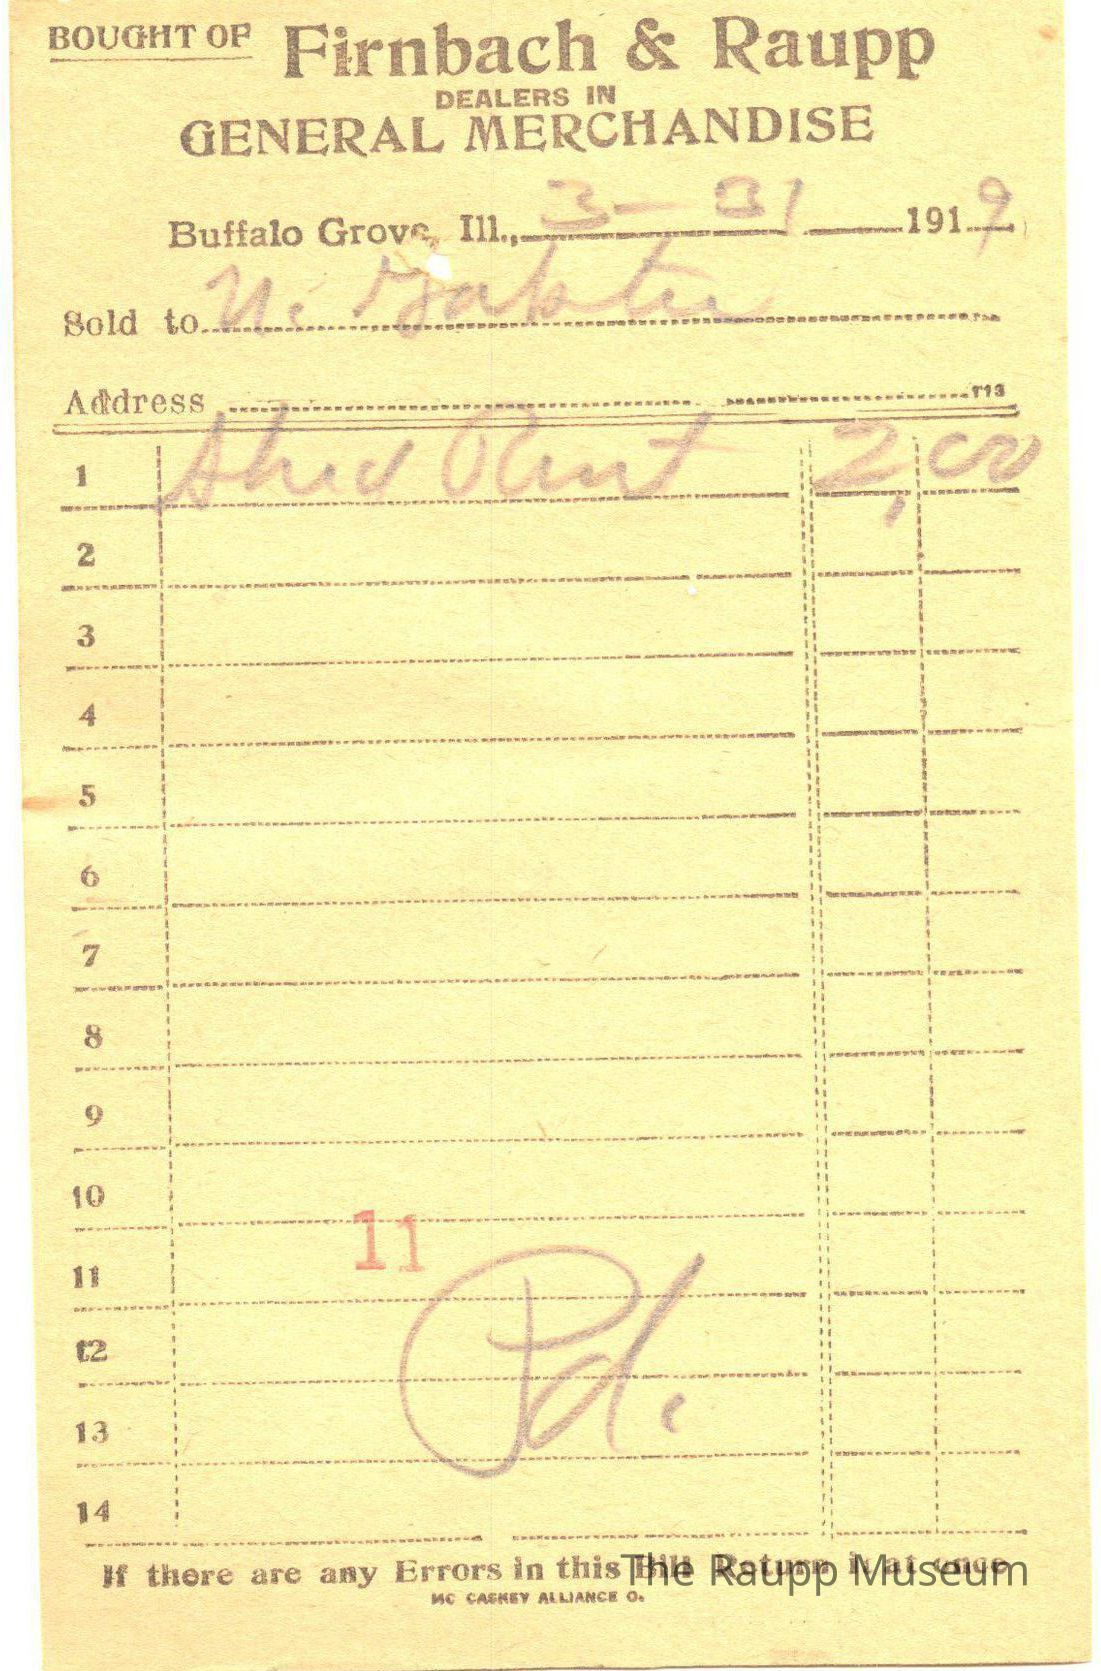 BOUGHT OF Firnbach & Raupp
DEALERS IN
GENERAL MERCHANDISE
Buffalo Grove, Ill., 3-31 1919
Sold to N.
Address 713
1 Shed Rent 2,00
2
3
4
5
6
7
8
9
10
11
11
12
Pd.
13
14
If there are any Errors in this Bill Return it at once
The Raupp Museum
MC CASKEY ALLIANCE O.